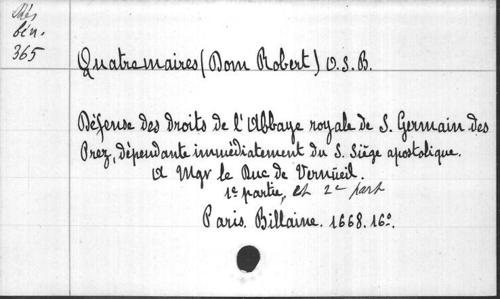 Rés
bén.
365
Quatremaires (Dom Robert) O.S.B.
Défense des droits de l'Abbaye royale de S. Germain des
Prez, dépendante immédiatement du S. Siège apostolique.
A Mgr le Duc de Verneüeil.
1e partie, et 2e part
Paris. Billaine. 1668. 16º.